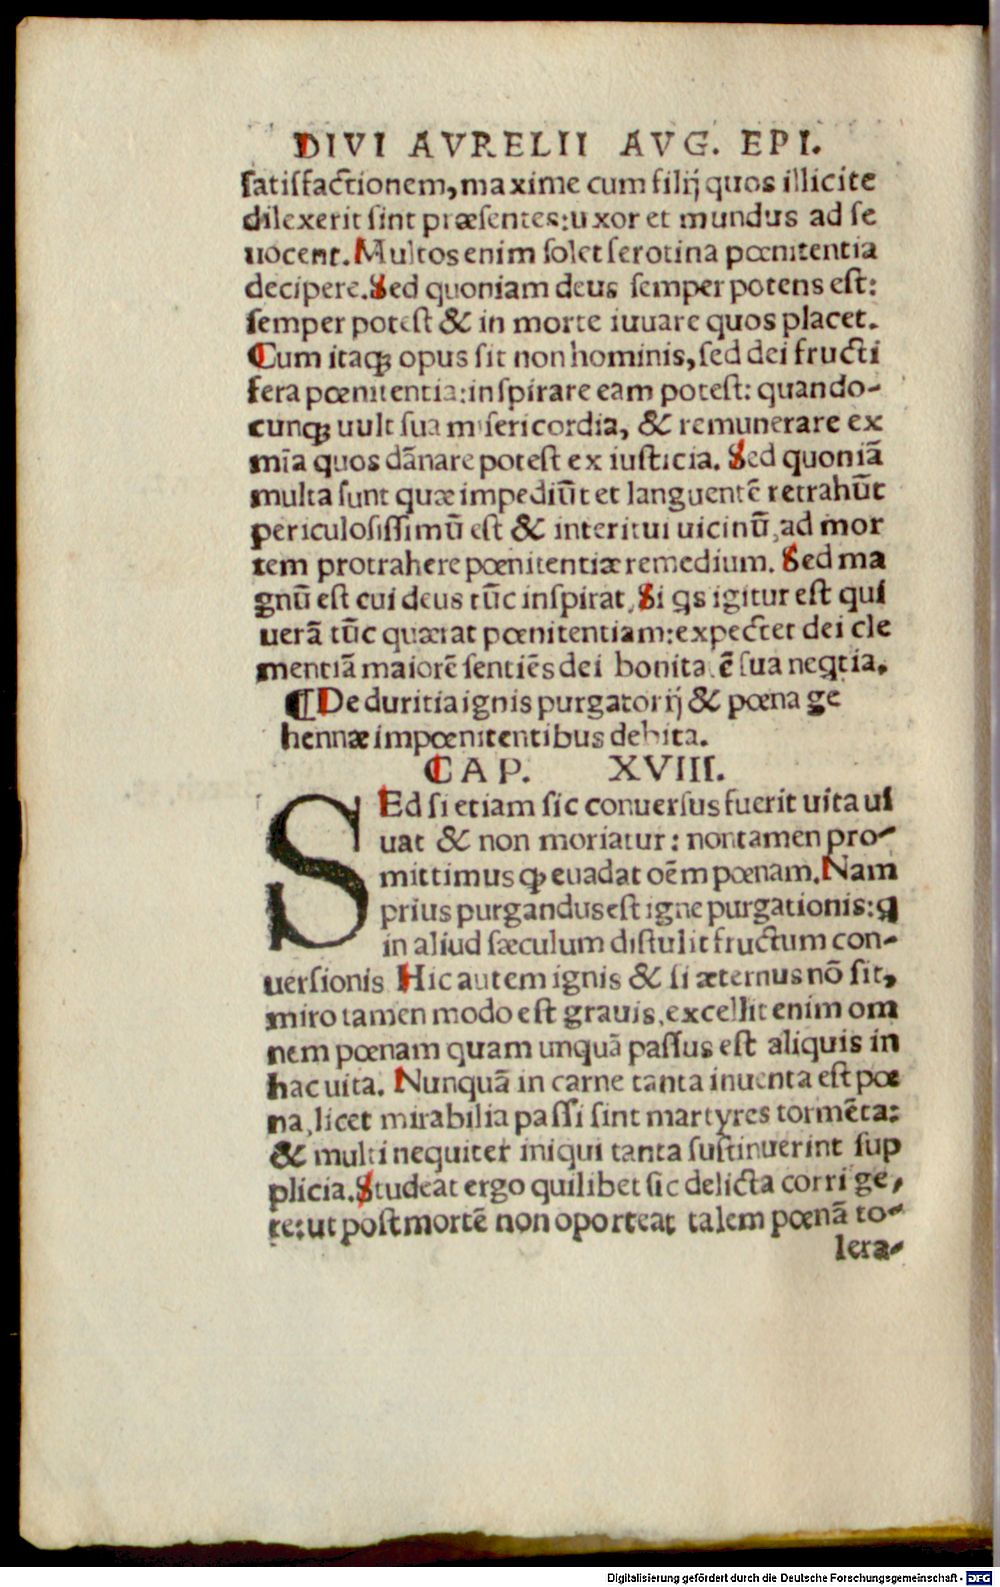 DIVI AVRELII AVG. EPI.
satisfactionem, maxime cum filij quos illicite
dilexerit sint præsentes: uxor et mundus ad se
uocent. Multos enim solet serotina pœnitentia
decipere. Sed quoniam deus semper potens est:
semper potest & in morte iuuare quos placet.
Cum itaqꝫ opus sit non hominis, sed dei fructi
fera pœnitentia: inspirare eam potest: quando-
cunqꝫ uult sua misericordia, & remunerare ex
mĩa quos dãnare potest ex iusticia. Sed quoniã
multa sunt quæ impediũt et languentẽ retrahũt
periculosissimũ est & interitui uicinũ, ad mor
tem protrahere pœnitentiæ remedium. Sed ma
gnũ est cui deus tũc inspirat, Si qs igitur est qui
uerã tũc quærat pœnitentiam: expectet dei cle
mentiã maiorẽ sentiẽs dei bonitatẽ sua neqtia.
¶De duritia ignis purgatorij & pœna ge
hennæ impœnitentibus debita.
CAP. XVIII.
SEd si etiam sic conuersus fuerit uita ui
uat & non moriatur: non tamen pro-
mittimus ꝙ euadat oẽm pœnam. Nam
prius purgandus est igne purgationis: q
in aliud sæculum distulit fructum con-
uersionis Hic autem ignis & si æternus nõ sit,
miro tamen modo est grauis, excellit enim om
nem pœnam quam unquã passus est aliquis in
hac uita. Nunquã in carne tanta inuenta est pœ
na, licet mirabilia passi sint martyres tormẽta:
& multi nequiter iniqui tanta sustinuerint sup
plicia. Studeat ergo quilibet sic delicta corrige,
re: ut post mortẽ non oporteat talem pœnã to-
lera-
Digitalisierung gefördert durch die Deutsche Forschungsgemeinschaft - DFG